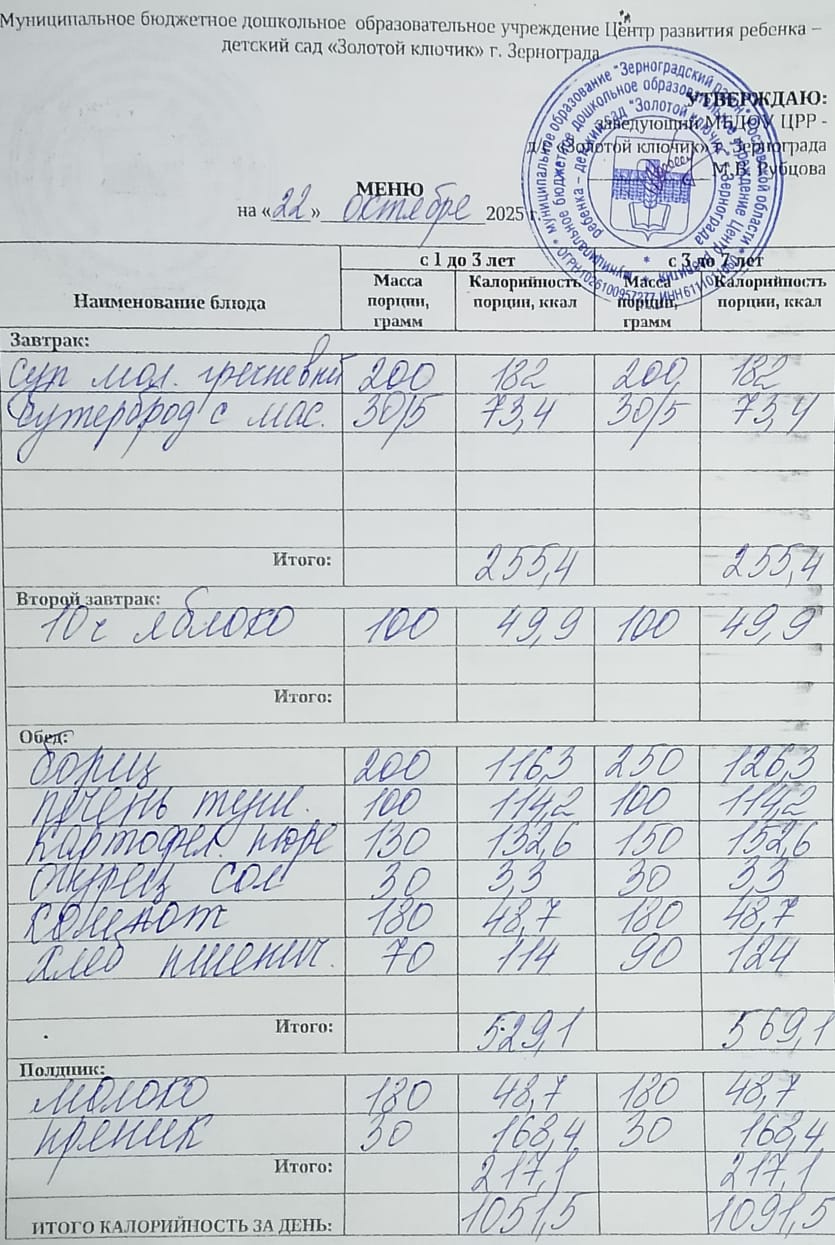 Муниципальное бюджетное дошкольное образовательное учреждение Центр развития ребенка –
детский сад «Золотой ключик» г. Зернограда
УТВЕРЖДАЮ:
заведующий МБДОУ ЦРР -
д/с «Золотой ключик» г. Зернограда
М.В. Рубцова
МЕНЮ
на «22» октября 2025 г.
Наименование блюда с 1 до 3 лет с 3 до 7 лет
Масса порции, грамм Калорийность порции, ккал Масса порции, грамм Калорийность порции, ккал
Завтрак:
Суп мол. гречневый 200 182 200 182
Бутерброд с мас. 30/5 73,4 30/5 73,4
Итого: 255,4 255,4
Второй завтрак:
10ч яблоко 100 49,9 100 49,9
Итого:
Обед:
борщ 200 116,3 250 126,3
печень туш. 100 114,2 100 114,2
картофел. пюре 130 132,6 150 152,6
огурец сол 30 3,3 30 3,3
компот 180 48,7 180 48,7
хлеб пшенич. 70 114 90 124
Итого: 529,1 569,1
Полдник:
молоко 180 48,7 180 48,7
пряник 30 168,4 30 168,4
Итого: 217,1 217,1
ИТОГО КАЛОРИЙНОСТЬ ЗА ДЕНЬ: 1051,5 1091,5